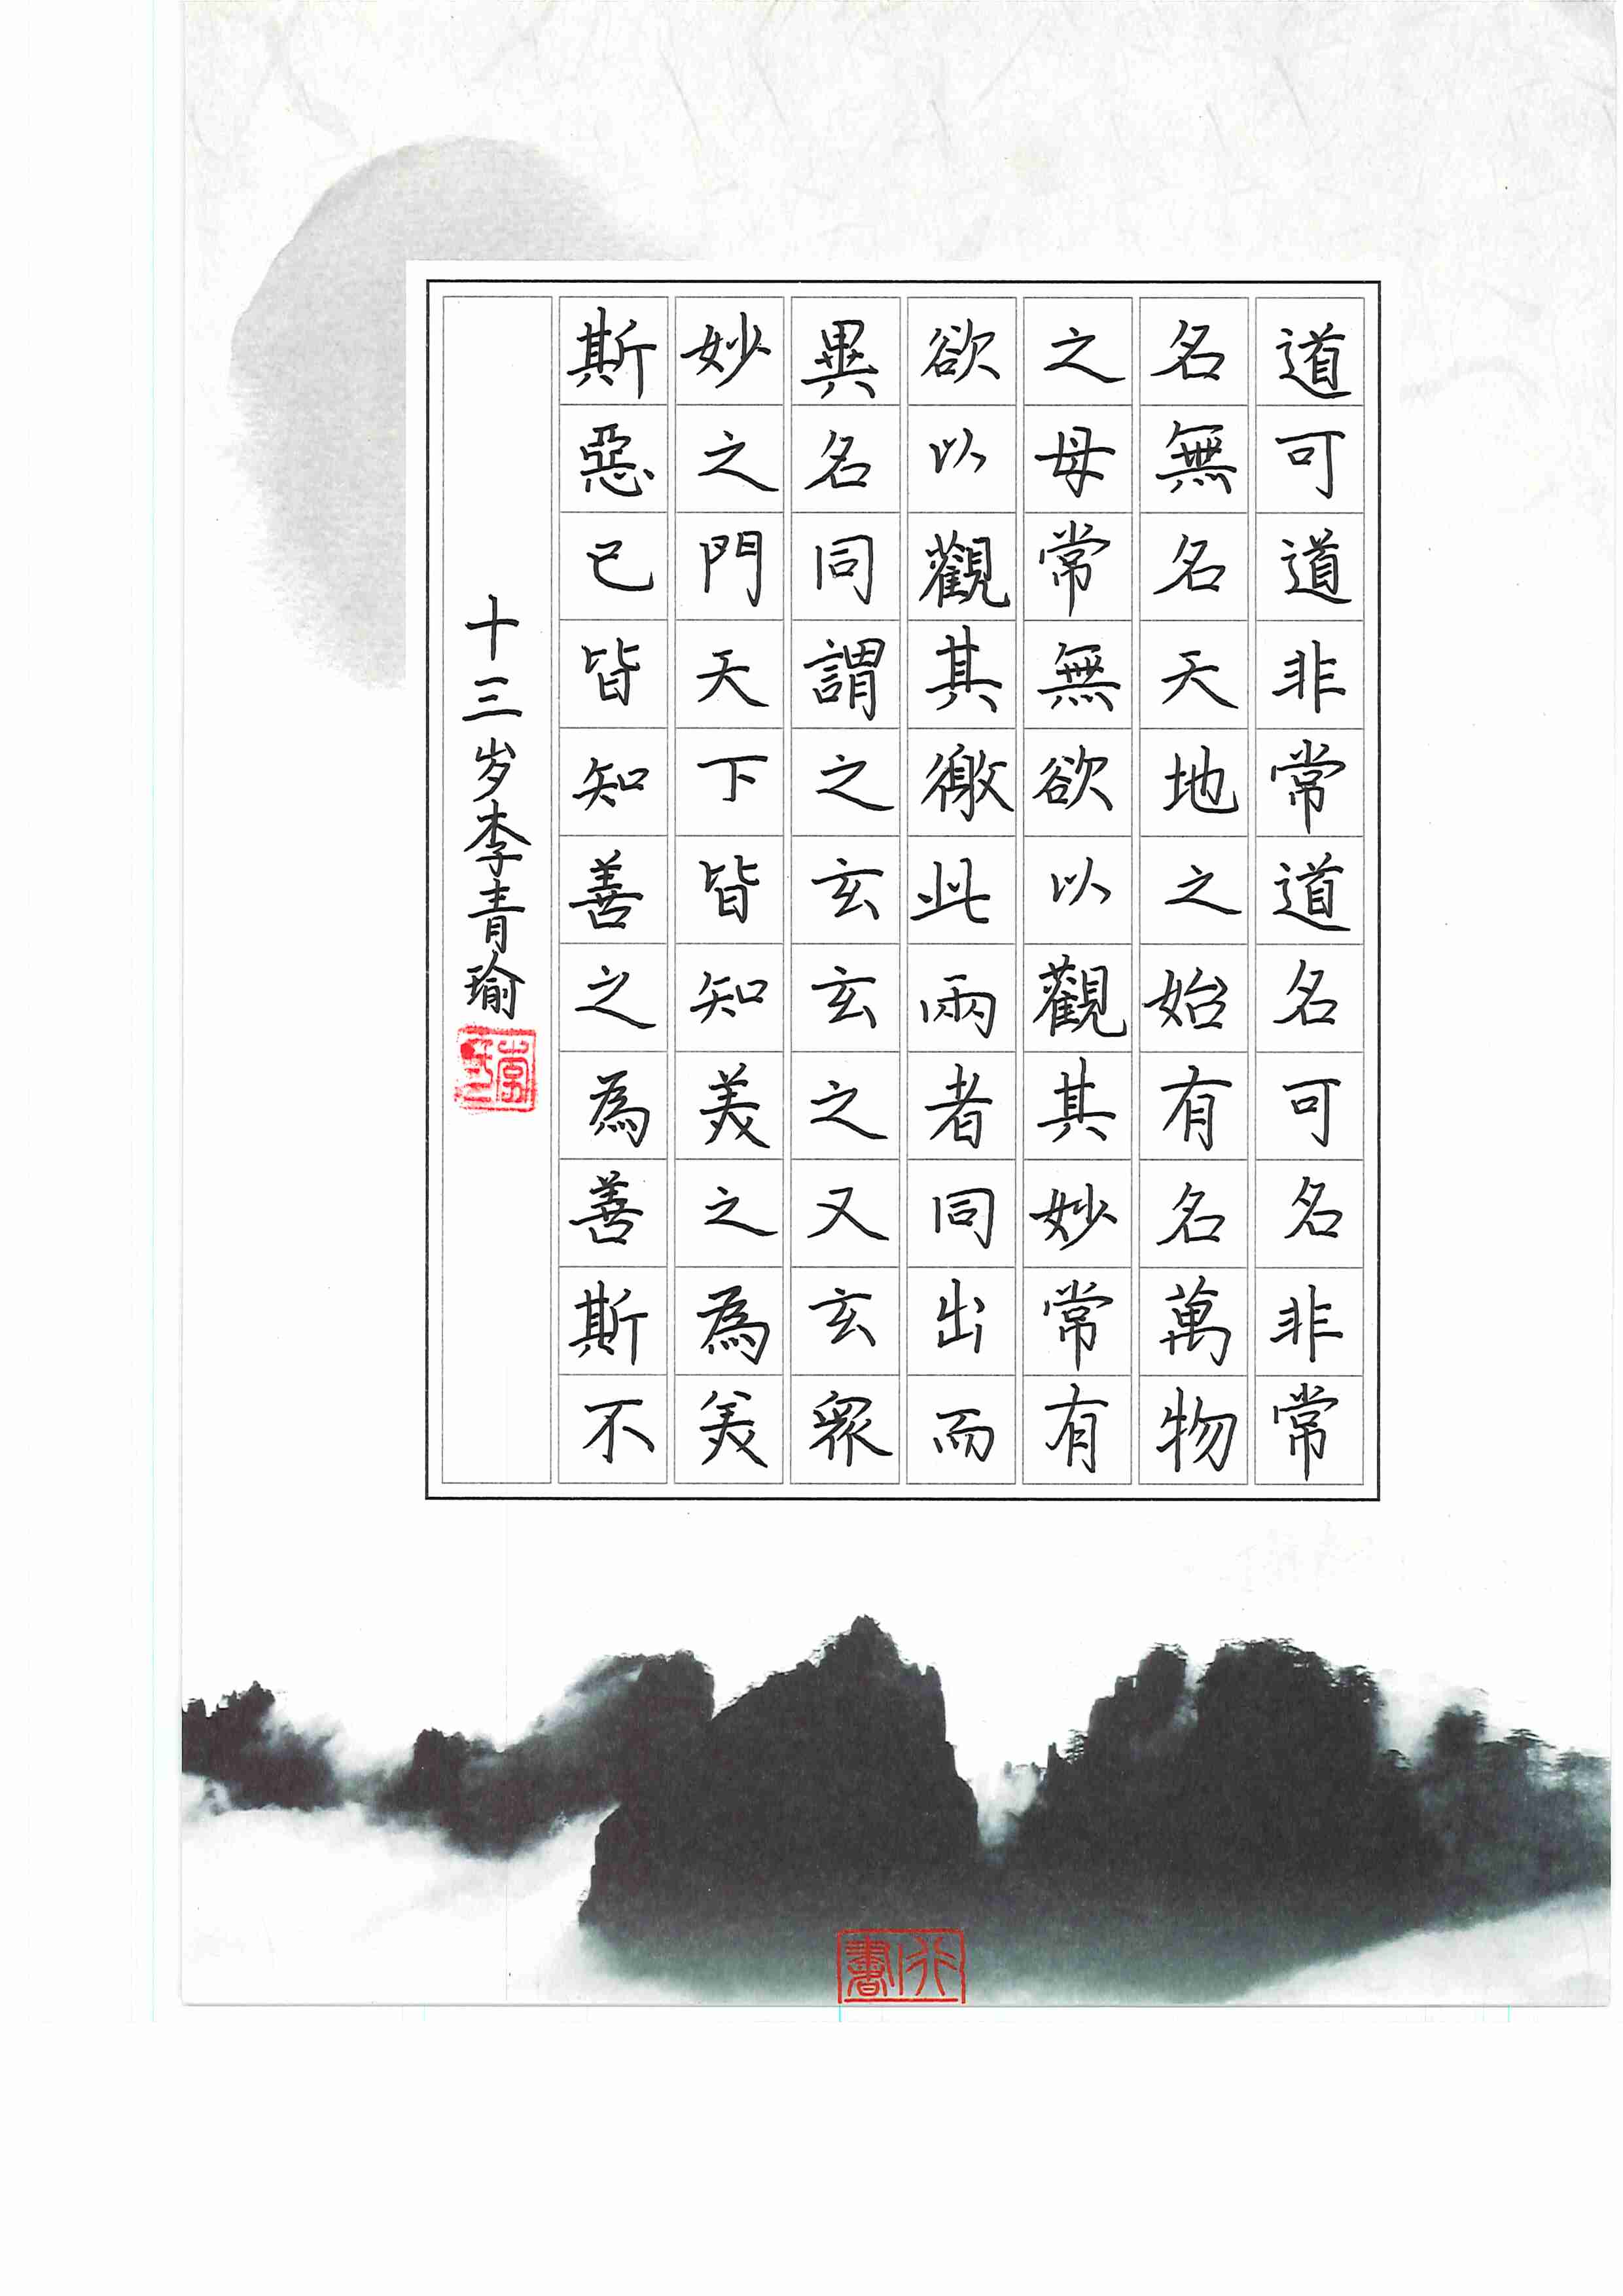 道可道非常道名可名非常
名無名天地之始有名萬物
之母常無欲以觀其妙常有
欲以觀其徼此兩者同出而
異名同謂之玄玄之又玄眾
妙之門天下皆知美之為美
斯惡已皆知善之為善斯不
十三岁李青瑜
行書